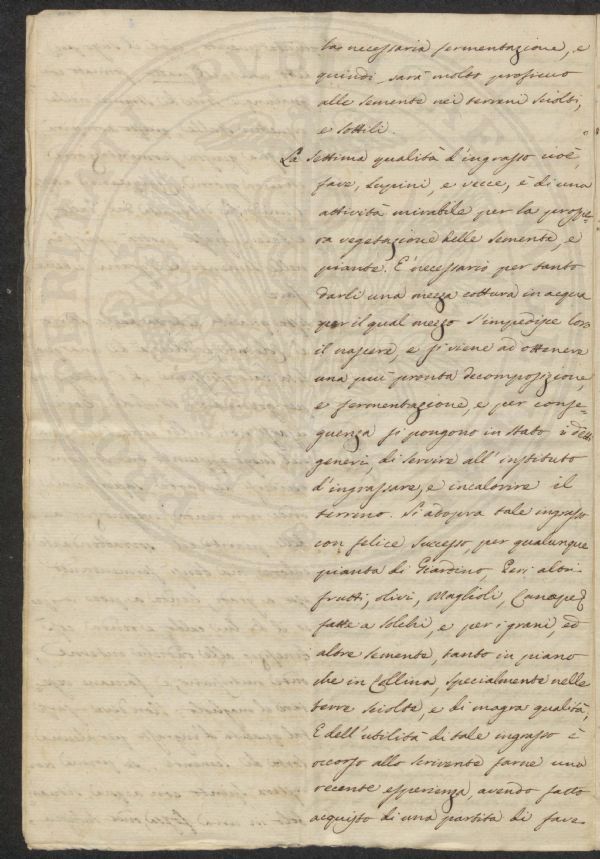 la necessaria fermentazione, e
quindi sarà molto proficuo
alle semente nei terreni sciolti,
e sottili.
La Settima qualità d'ingrasso cioè,
fave, Lupini, e vecce, è di una
attività mirabile per la prospe=
ra vegetazione delle semente, e
piante. È necessario per tanto
darli una mezza cottura in acqua
per il qual mezzo s'impedisce loro
il nascere, e si viene ad ottenere
una più pronta decomposizione,
e fermentazione, e per conse=
guenza si pongono in stato i detti
generi, di servire all'instituto
d'ingrassare, e incalorire il
terreno. Si adopra tale ingrasso
con felice successo, per qualunque
pianta di Giardino, Peri altri
frutti, olivi, Maglioli, Canape
fatte a solchi, e per i grani, ed
altre semente, tanto in piano
che in Collina, specialmente nelle
terre sciolte, e di magra qualità,
E dell'utilità di tale ingrasso è
occorso allo scrivente farne una
recente esperienza, avendo fatto
acquisto di una partita di fave